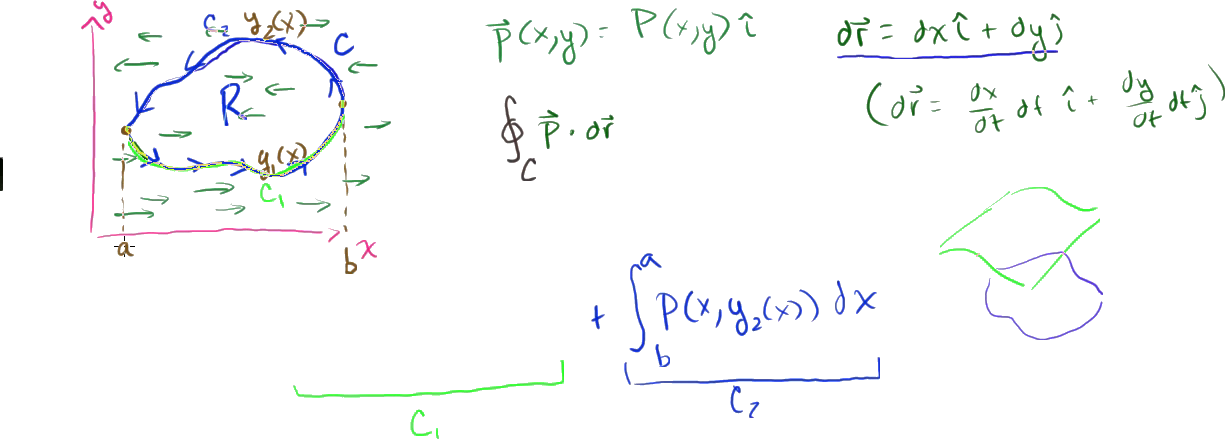 y
C₂ y₂(x)
C
R
y₁(x)
C₁
a
b
x
p⃗(x,y) = P(x,y) î
dr⃗ = dx î + dy ĵ
(dr⃗ = dx/dt dt î + dy/dt dt ĵ)
∮_C p⃗ · dr⃗
+ ∫_b^a P(x, y₂(x)) dx
C₁
C₂